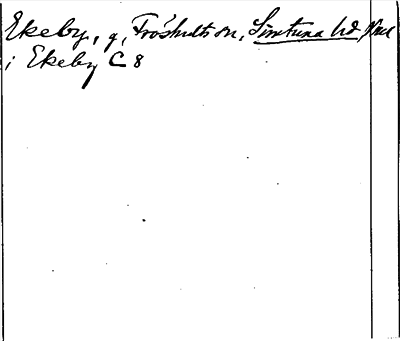 Ekeby, g, Fröshults sn, Simtuna hd,
i Ekeby C 8